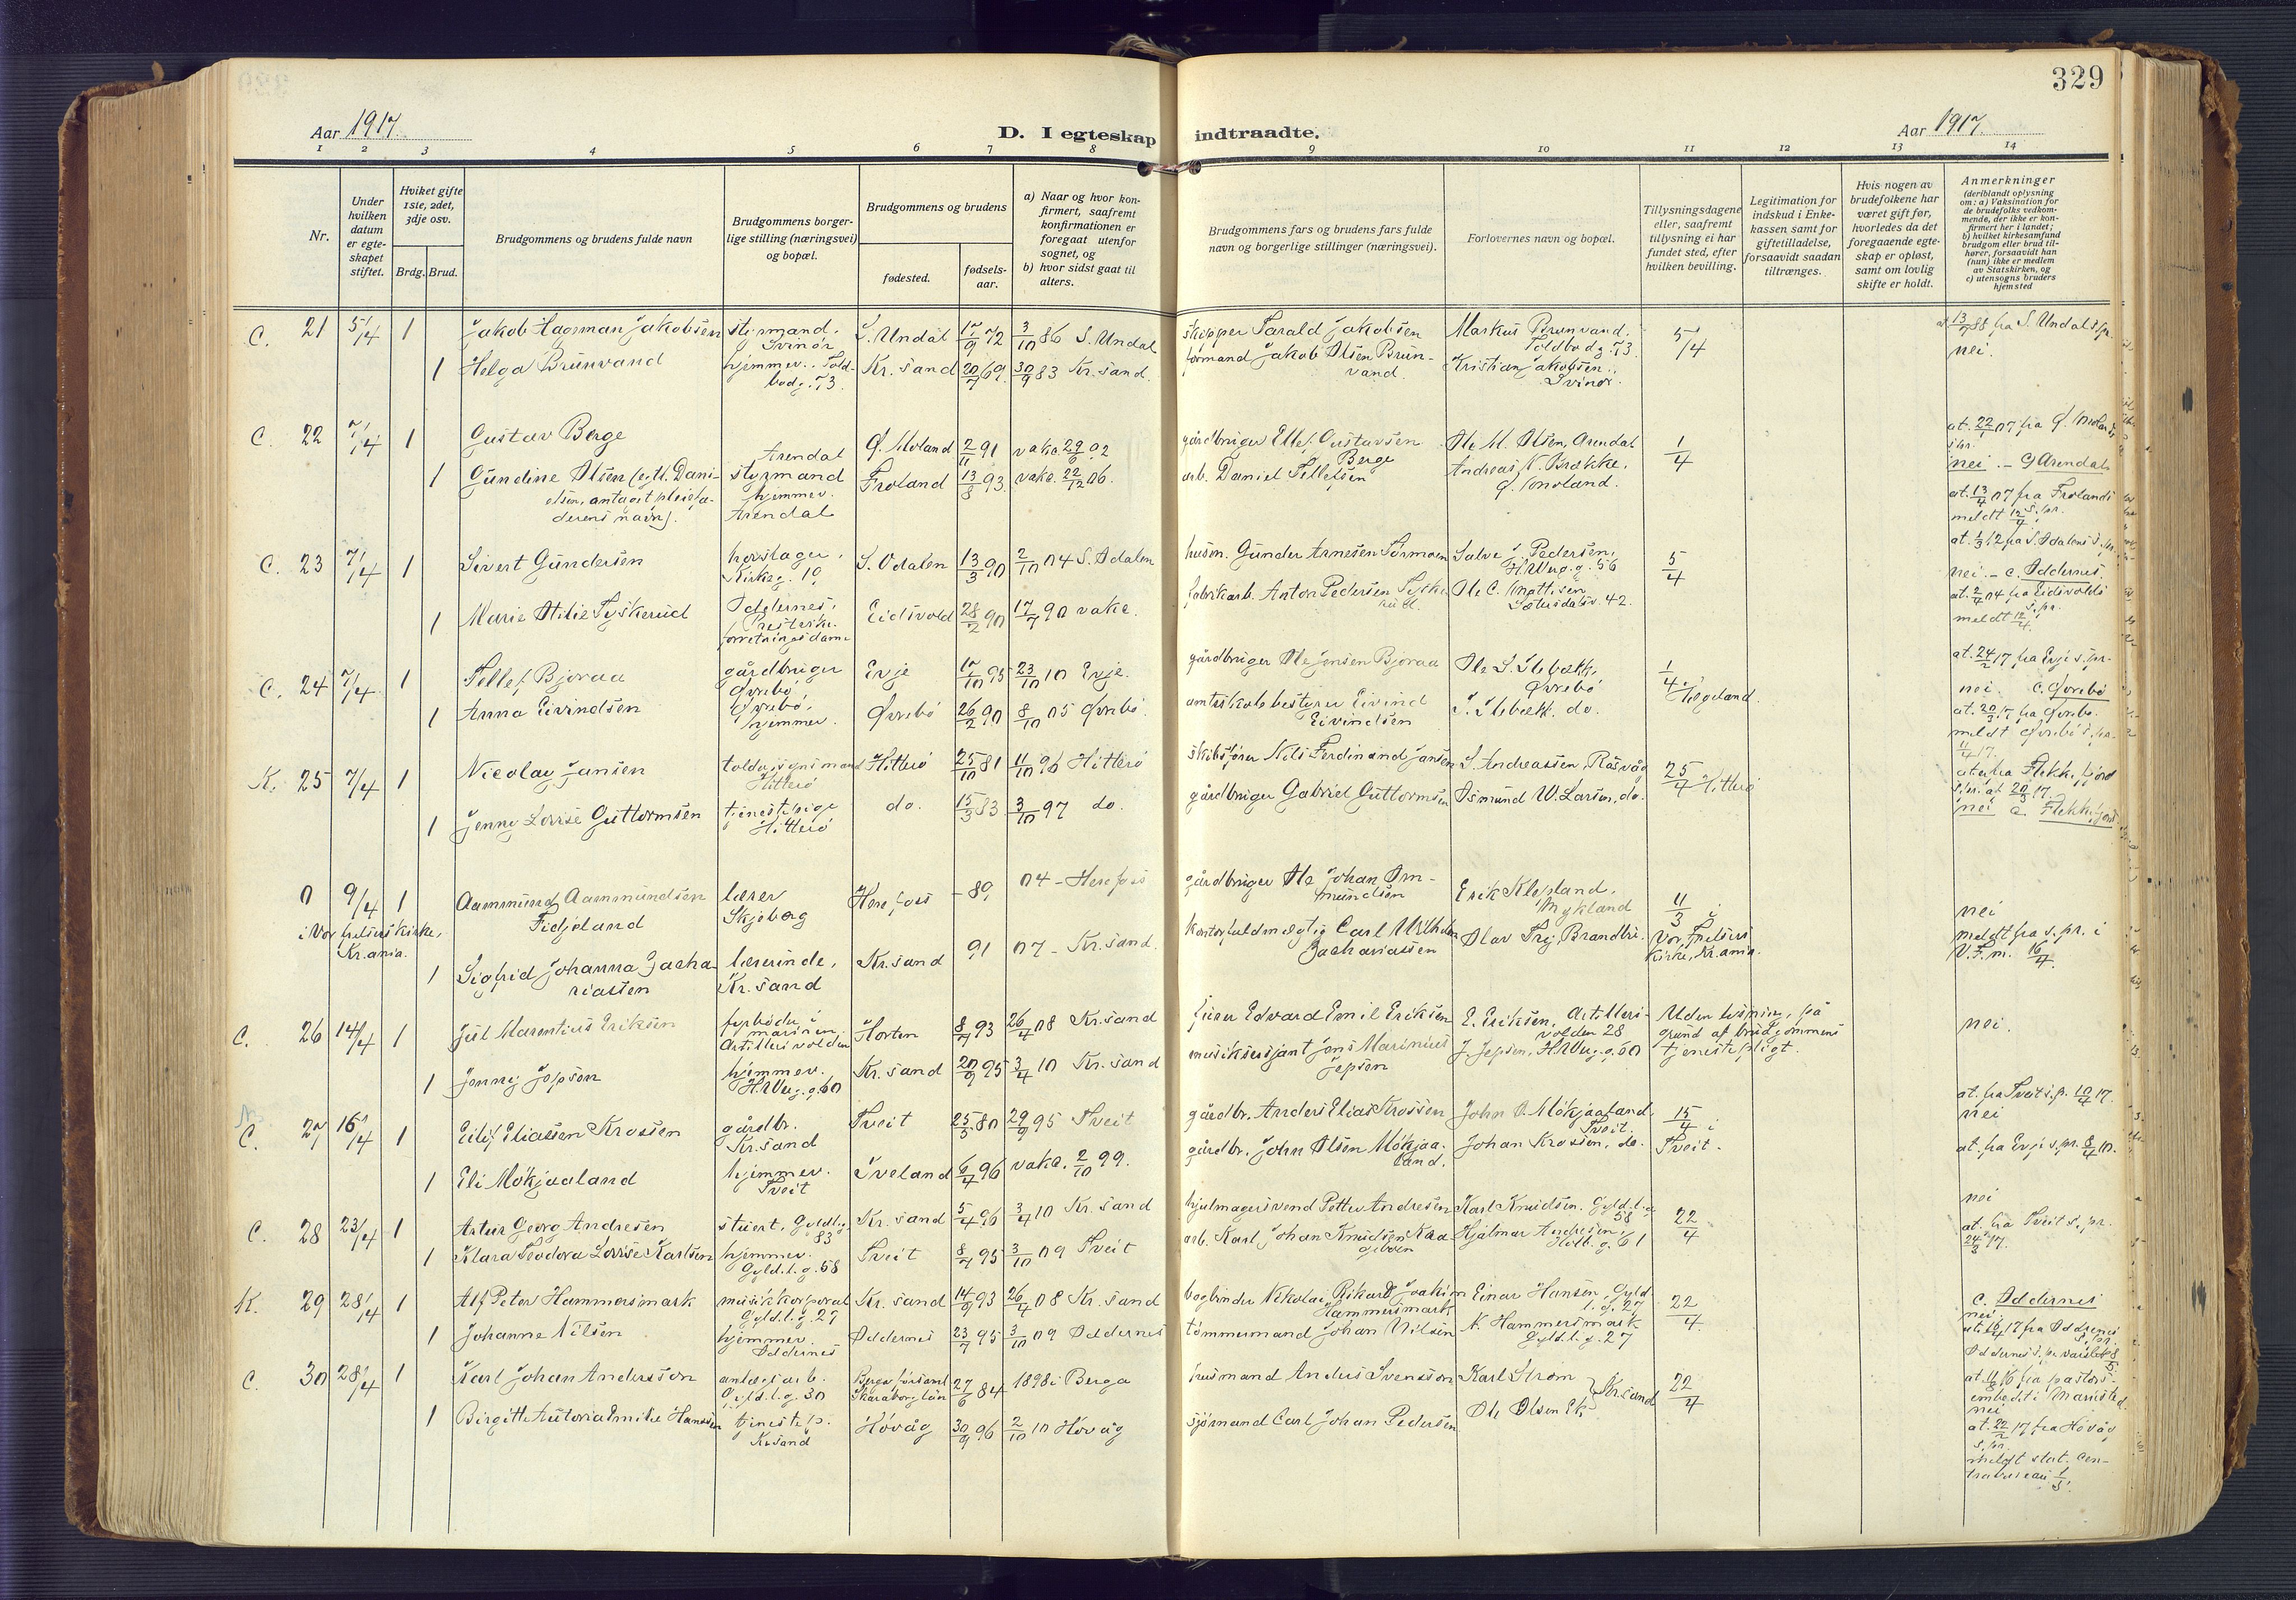 329
Aar 1917.
D. I egteskap indtraadte.
Aar 1917.
1 2 3 4 5 6 7 8 9 10 11 12 13 14
Nr.
Under hvilken datum er egte-skapet stiftet.
Hviket gifte 1ste, 2det, 3dje osv.
Brdg. Brud.
Brudgommens og brudens fulde navn
Brudgommens borger-
lige stilling (næringsvei)
og bopæl.
Brudgommens og brudens
fødested.
fødsels-
aar.
a) Naar og hvor kon-
firmert, saafremt
konfirmationen er
foregaat utenfor
sognet, og
b) hvor sidst gaat til
alters.
Brudgommens fars og brudens fars fulde
navn og borgerlige stillinger (næringsvei).
Forlovernes navn og bopæl.
Tillysningsdagene
eller, saafremt
tillysning ei har
fundet sted, efter
hvilken bevilling.
Legitimation for
indskud i Enke-
kassen samt for
giftetilladelse,
forsaavidt saadan
tiltrænges.
Hvis nogen av
brudefolkene har
været gift før,
hvorledes da det
foregaaende egte-
skap er opløst,
samt om lovlig
skifte er holdt.
Anmerkninger
(deriblandt oplysning
om: a) Vaksination for
de brudefolks vedkom-
mende, der ikke er kon-
firmert her i landet;
b) hvilket kirkesamfund
brudgom eller brud til-
hører, forsaavidt han
(hun) ikke er medlem
av Statskirken, og
c) utensogns bruders
hjemsted
C. 21 5/4 1 Jakob Hageman Jakobsen styrmand. Svinør S. Undal 17/9 72 3/10 86 S. Undal skipper Tarald Jakobsen Markus Brunvand, Toldbodg. 73 5/4 at 13/9 88 fra S. Undals s.pr.
1 Helga Brunvand hjemmev. Told-bodg. 73. Kr.sand 20/7 69 30/9 83 Kr.sand. formand Jakob Olsen Brun-vand. Kristian Jakobsen, Svinør. nei.
C. 22 7/4 1 Gustav Berge Arendal styrmand Ø. Moland 2/11 91 vakc. 29/6 02 gårdbruger Ellef Gustavsen Berge Ole M. Olsen, Arendal 1/4 nei. - C Arendal
1 Gundine Olsen (egtl. Dani-elsen, antaget pleiefa-derens navn). hjemmev. Arendal Froland 13/8 93 vakc. 22/12 06. arb. Daniel Tellefsen Andreas K. Brække, Ø. Moland. at. 13/4 07 fra Frolands s.pr. meldt 12/4.
C. 23 7/4 1 Sivert Gundersen Kirkeg. 10 S. Odalen 13/3 90 2/10 04 S. Odalen husm. Gunder Arnesen Salve J. Pedersen, H.Werg.g. 56 5/4 nei. - c. Oddernes.
1 Marie Otilie Tyskerud Oddernes, forretningsdame Eidsvold 28/2 90 17/7 90 vakc. fabrikarb. Anton Pedersen Ole C. Mattisen Sætersdalsv. 42. at. 2/4 04 fra Eidsvolds s.pr. meldt 12/4.
C. 24 7/4 1 Tellef Bjoraa gårdbruger Øvrebø Evje 17/10 95 23/10 10 Evje. gårdbruger Ole Jensen Bjoraa Ole S. Stebekk, Øvrebø 1/4 Hægeland. at. 24/2 17 fra Evje s.pr. nei. C. Øvrebø
1 Anna Eivindsen Øvrebø, hjemmev. Øvrebø 26/2 90 8/10 05 Øvrebø. amtskolebestyrer Eivind Eivindsen S. Stebekk. do. at. 20/3 17 fra Øvrebø. meldt Øvrebø s.pr. 11/4 17.
K. 25 7/4 1 Nicolay Jansen Hitterø Hitterø 25/10 81 11/10 96 Hitterø skibsfører Nils Ferdinand Jansen S. Andreassen, Rasvåg 25/4 Hitterø
1 Jenny Lovise Guttormsen tjenestepige Hitterø do. 15/3 83 3/10 97 do. gårdbruger Gabriel Guttormsen Osmund W. Larsen, do. nei c. Flekkefjord
0 9/4 1 Aammund Aammundsen Fidjeland lærer Skjeberg Herefoss 89 04 - Herefoss gårdbruger Ole Johan Om-mundsen Erik Klepland, Mykland 11/3 i nei
i Vor frelsers kirke, Kr.ania.
1 Sigfrid Johanna Zacha-riassen lærerinde, Kr.sand Kr.sand 91 07 - Kr.sand. kontorfuldmegtig Carl Wilhelm Zachariassen Olav Frej Brandtri. Vor Frelsers kirke, Kr.ania. meldt fra s.pr. i V.F.m. 16/4.
C. 26 14/4 1 Jul Marentius Eriksen fyrbøder i marinen, Artillerivolden Horten 8/7 93 26/4 08 Kr.sand furer Edvard Emil Eriksen E. Eriksen, Artilleri-volden 28 Uden lysning, på grund af brudgommens tjenestepligt. nei.
1 Jenny Jepsen hjemmev. H.Werg.g. 60 Kr.sand 20/9 95 3/4 10 Kr.sand musiksersjant Jens Marinius Jepsen J. Jepsen, H.Werg.g. 60
C. 27 16/4 1 Eilif Eliassen Krossen gårdbr. Kr.sand Tveit 25/5 80 29/9 95 Tveit gårdbr. Anders Elias Krossen John O. Møkjaaland, Tveit. 15/4 i Tveit. at. fra Tveit s.p. 10/4 17. nei
1 Eli Møkjaaland hjemmev. Tveit Iveland 6/4 96 vakc. 2/10 99. gårdbr. John Olsen Møkjaa-land. Johan Krossen, do. at. fra Evje s.pr. 8/4 10.
C. 28 23/4 1 Artur Georg Andresen stuert, Gyldl.g. 83 Kr.sand 5/4 96 3/4 10 Kr.sand hjulmagersvend Petter Andresen Karl Knudsen. Gyld.l.g. 58 22/4 nei
1 Klara Teodora Lovise Karlsen hjemmev. Gyld.l.g. 58 Tveit 8/7 95 3/10 09 Tveit arb. Karl Johan Knudsen Hjalmar Andresen, Holb.g. 61 at. fra Tveit s.pr. 24/3 17.
K. 29 28/4 1 Alf Peter Hammersmark musikkorporal Gyld.l.g. 27 Kr.sand 14/9 93 26/4 08 Kr.sand bogbinder Nikolai Rikard Joakim Hammersmark Einar Hansen, Gyld.l.g. 27 22/4 C. Oddernes nei.
1 Johanne Nilsen hjemmev. Oddernes Oddernes 23/7 95 3/10 09 Oddernes tømmermand Johan Nilsen N. Hammersmark Gyld.l.g. 27
C. 30 28/4 1 Karl Johan Andersson Gyld.l.g. 30 Berga Skaraborg län 27/6 84 1898 i Berga husmand Anders Svensson Karl Strøm Kr.sand 22/4 at. 11/8 16 fra pastors-embedet i Mariestad. nei
1 Birgitte Autoria Emilie Hanssen tjenestep. Kr.sand Høvåg 30/9 96 2/10 10 Høvåg sjømand Carl Johan Pedersen Ole Olsen Ek at. 22/2 17 fra Høvåg s.pr. meldt stat. Cen-tralbureau 1/5.